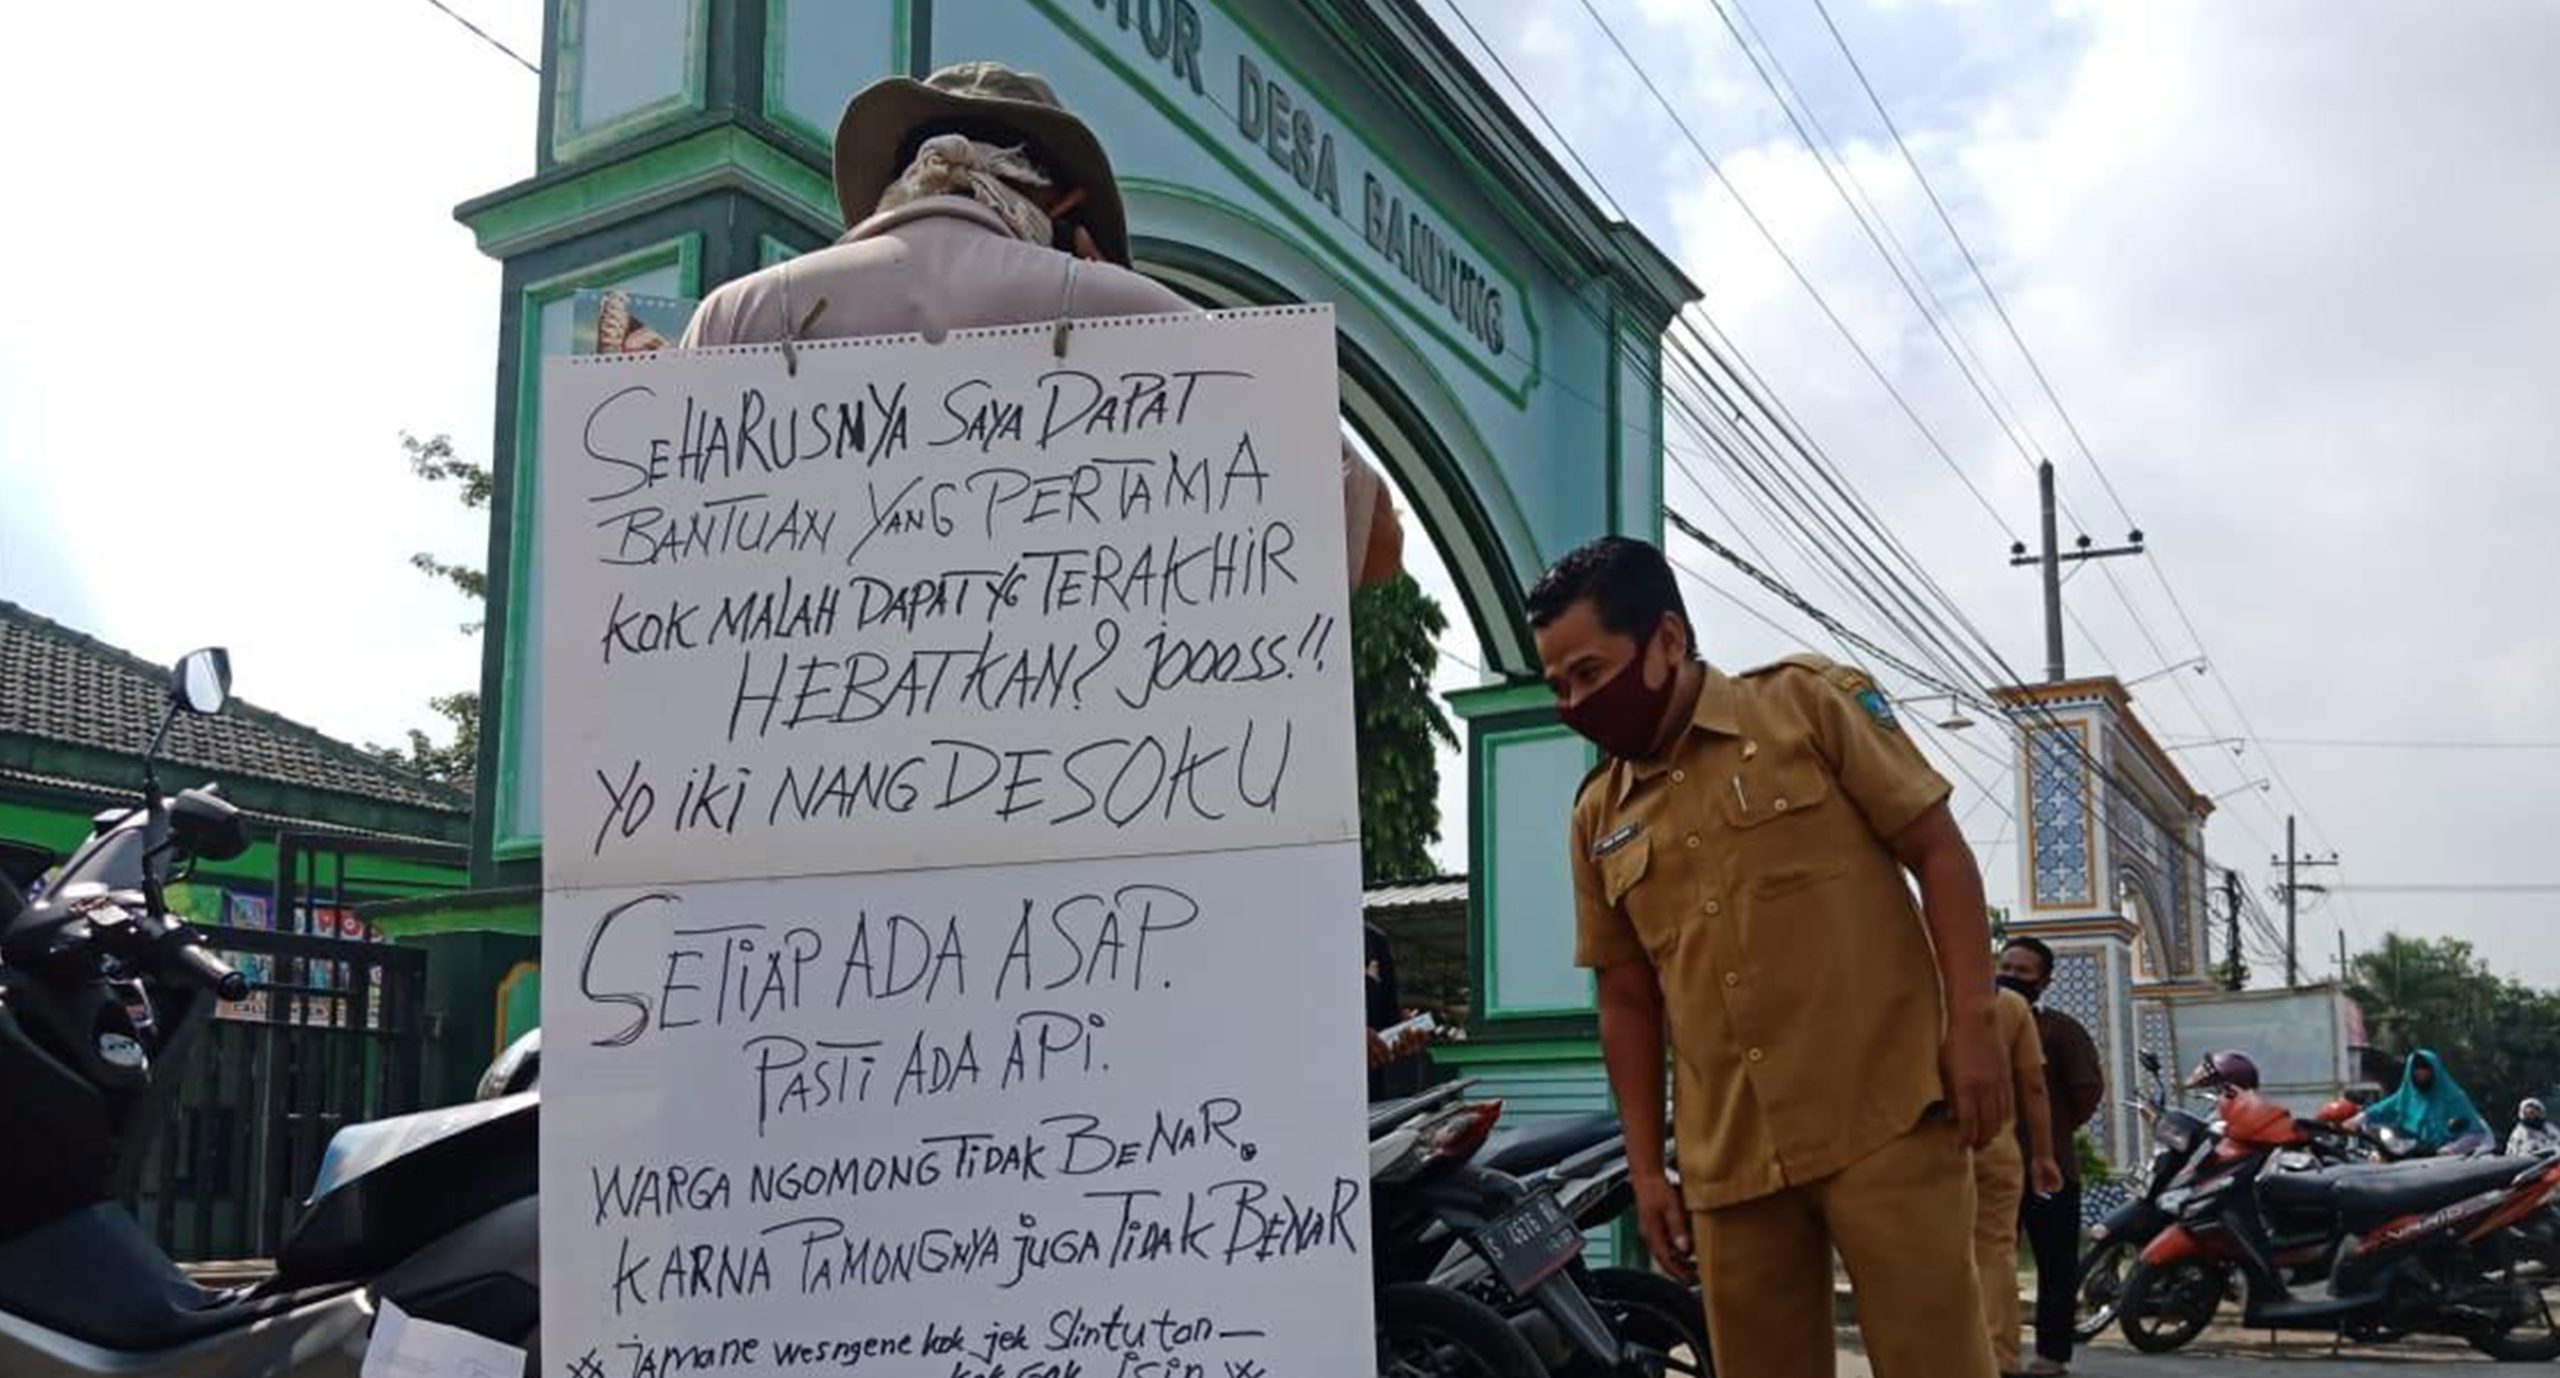 TOR DESA BANDUNG
SEHARUSNYA SAYA DAPAT
BANTUAN YANG PERTAMA
KOK MALAH DAPAT YG TERAKHIR
HEBATKAN? joooss!!
YO iKi NANG DESOKU
SETiAP ADA ASAP.
PASTi ADA APi.
WARGA NGOMONG TiDAK BENAR.
KARNA PAMONGNYA jUGA TiDAK BENAR
JAMANE wesngene kok jek Slintutan
kok Gak isin